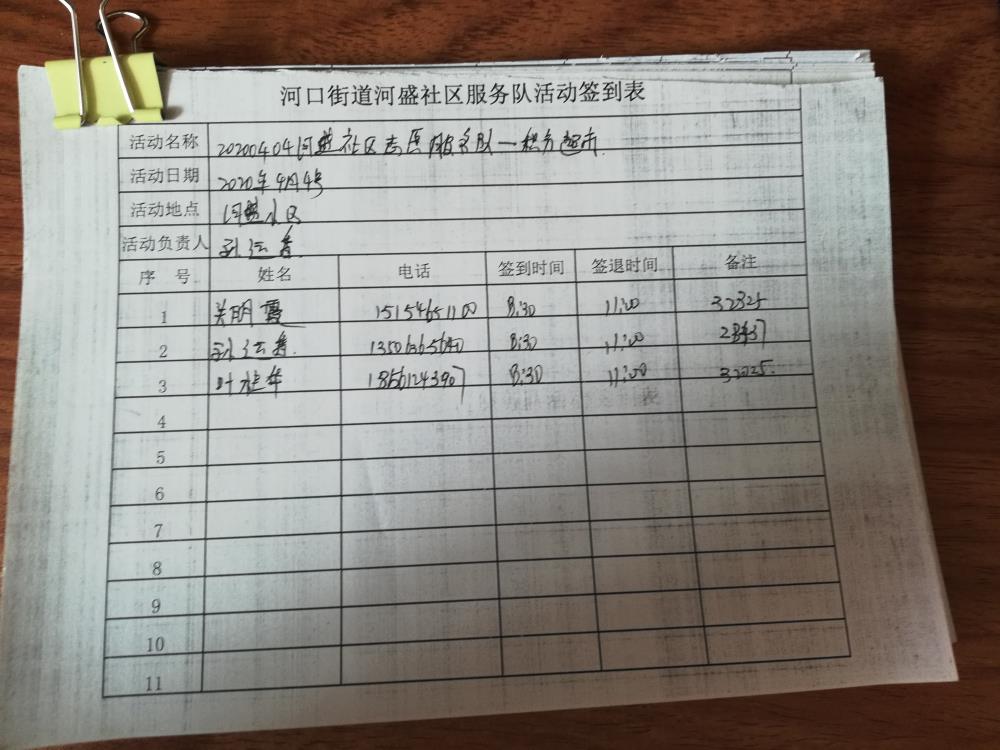 河口街道河盛社区服务队活动签到表
活动名称 20200404河盛社区志愿服务队一积分超市
活动日期 2020年4月4号
活动地点 河盛小区
活动负责人
序号 姓名 电话 签到时间 签退时间 备注
1 关明霞 15154651100 8:30 11:00 32325
2 8:30 11:00
3 叶桂华 18561243907 8:30 11:00
4
5
6
7
8
9
10
11